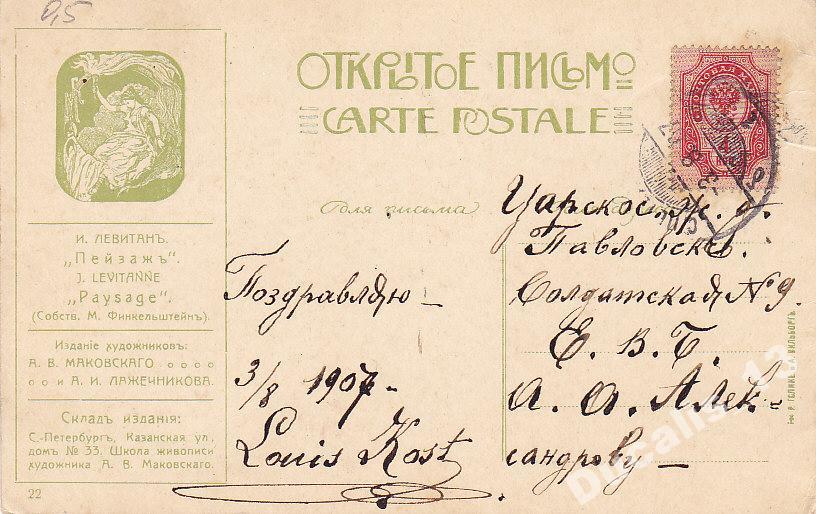 0,5
ОТКРЫТОЕ ПИСЬМО
CARTE POSTALE
ПОЧТОВАЯ МАРКА
4
Для письма
И. ЛЕВИТАНЪ.
„Пейзажъ“.
J. LEVITANNE
„Paysage“.
(Собств. М. Финкельштейнъ).
Изданіе художниковъ:
А. В. МАКОВСКАГО
и А. И. ЛАЖЕЧНИКОВА.
Складъ изданія:
С.-Петербургъ, Казанская ул.,
домъ № 33. Школа живописи
художника А. В. Маковскаго.
22
Поздравляю —
3/8 1907 —
Louis Kost
Царскос. ж. д.
Павловскъ.
Солдатская № 9.
Е. В. Б.
А. А. Алек-
сандрову —
Ducalis_13